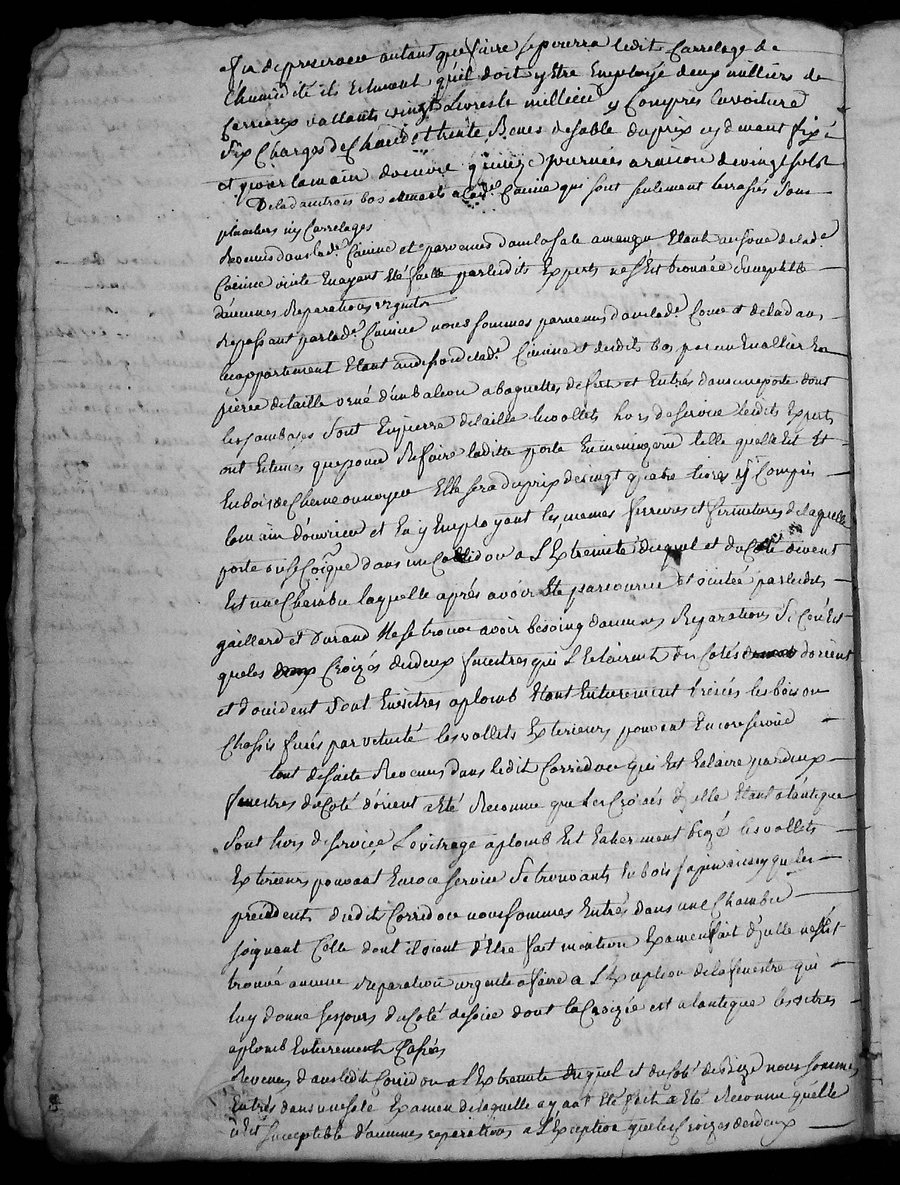 afin de preserver autant que faire se pourra ledit Carrelage de
Lhumidité ils Estiment quil doit y Etre Employé deux milliers de
Carreaux vallants vingt Livres le millier y Compris la voiture
Six Charges de Chaud et trente Benes de sable du prix cy devant fixé
et pour la main d'oeuvre quinze journées a raison de vingt sols
De la dans trois bas a Lad.e Cuisine qui sont seulement terrassés Sans
planchers ny Carrelages
Revenus dans lad.e Cuisine et parvenus dans la sale a manger Etant au de lad.e
Cuisine visite En ayant Eté faitte par lesdits Experts ne s'Est trouvée Susceptible
d'aucunes Reparations urgentes
Repassant par lad.e Cuisine nous sommes parvenus dans lad.e Cour et de la dans
un appartement Etant au de lad.e Cuisine et desdits bas par un Escallier En
pierre de taille orné d'un balcon a baguettes de fer et Entrés dans une porte dont
les jambages sont En pierre de taille les vollets hors de service lesdits Experts
ont Estimés que pour Refaire laditte porte En menuizerie telle quelle Est Et
En bois de Chene ou noyer Elle sera du prix de vingt quatre livres y Compris
la main d'ouvrier et En y Employant les memes ferrures et fermetures de laquelle
porte on se dans un Collidor a L'Extremité duquel et du Coté de vent
Est une Chambre laquelle après avoir Eté parcourue et visitée par lesdits
gaillard et Durand Ne se trouve avoir besoing d'aucunes Reparations Si Ce n'Est
que les Croizés des deux fenestres qui L'Eclairent du Cotés d'orient
et d'occident Sont En vitres a plomb Etant Entierement brisées les bois ou
Chassis par vetusté les vollets Exterieurs pouvant Encore servir
tout de suite Revenus dans ledit Corridor qui Est Eclairé par deux
fenestres du Coté d'orient a Eté Reconnu que Les Croizés d'icelle Etant a lantique
Sont hors de service Le vitrage a plomb Est Entierement brizé les vollets
Exterieurs pouvant Encore Servir Se trouvants En bois sapin ainsy que les
precedents dudit Corridor nous sommes Entrés dans une Chambre
joignant Celle dont il vient d'Etre fait mention Examen fait d'icelle ne s'Est
trouvé aucune Reparation urgente a faire a L'Exception de la fenestre qui
luy donne ses jours du Coté de soir dont la Croizée est a lantique les vitres
a plomb Entierement Cassés
Revenus dans ledit Corridor a L'Extremité duquel et du Coté de Bize nous sommes
Entrés dans une sale Examen de laquelle ayant Eté fait a Eté Reconnu quelle
n'Est Susceptible d'aucunes reparations a L'Exception que les Croizés des deux